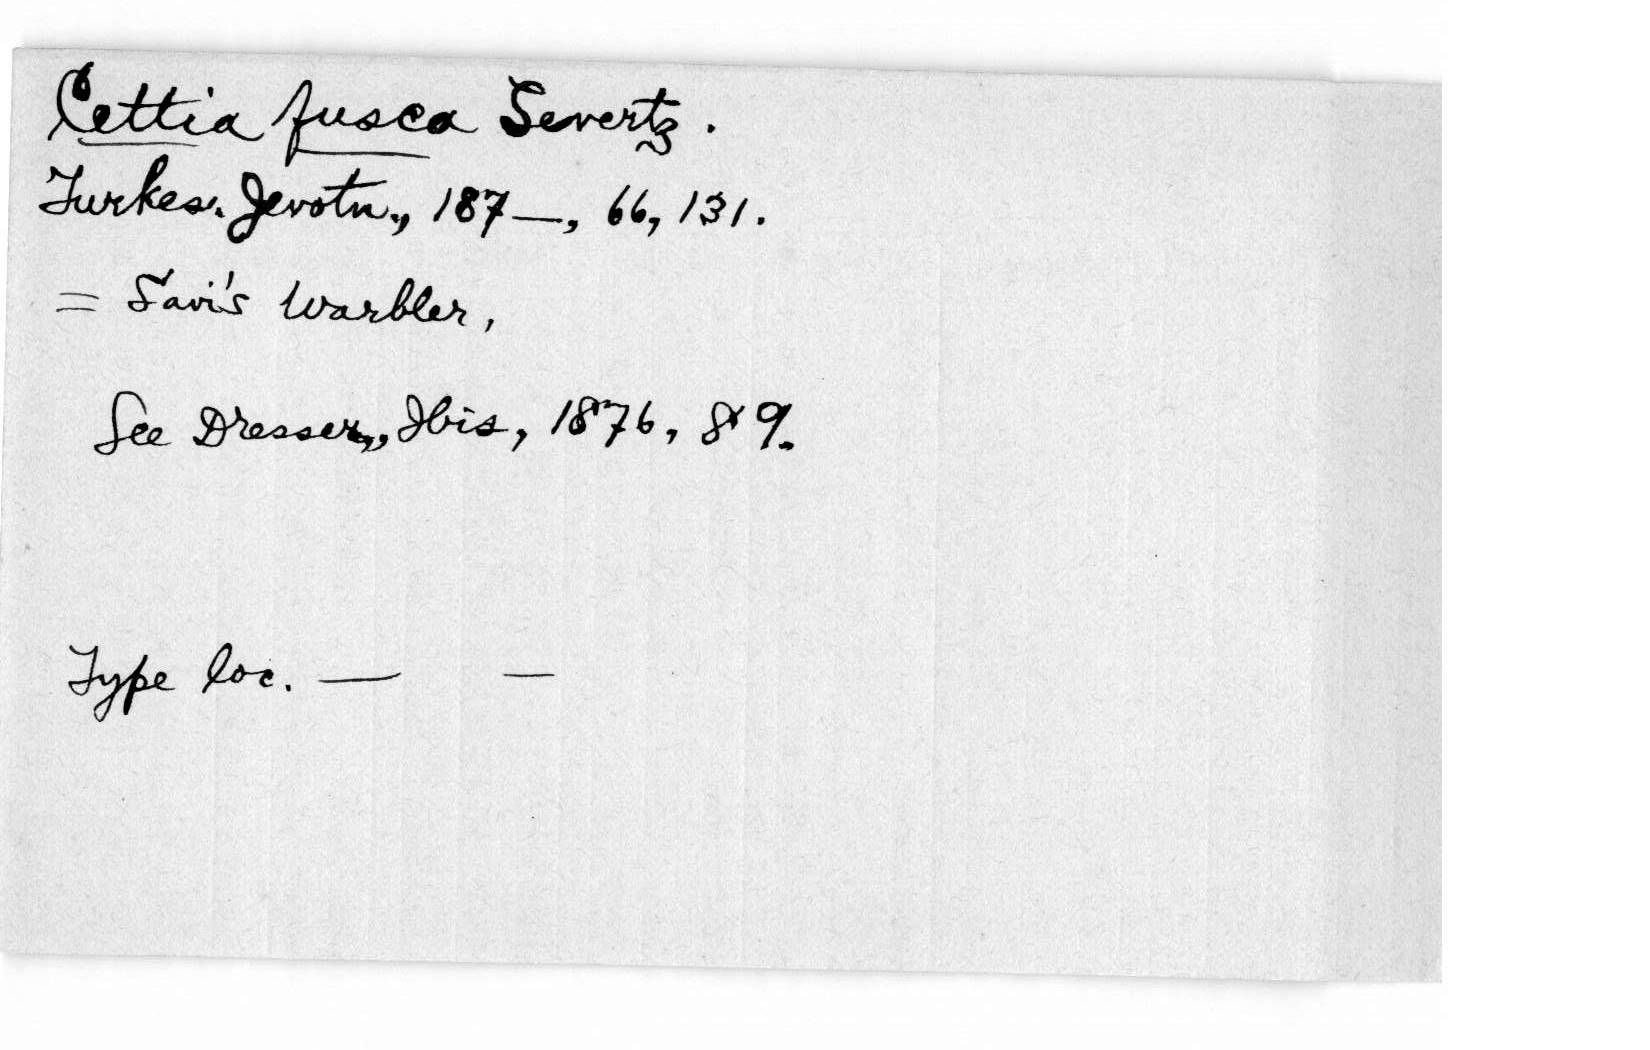 Cettia fusca Severtz.
Turkes. Jevotn., 187—, 66, 131.
= Savi's Warbler,
See Dresser,, Ibis, 1876, 89.
Type loc. — —